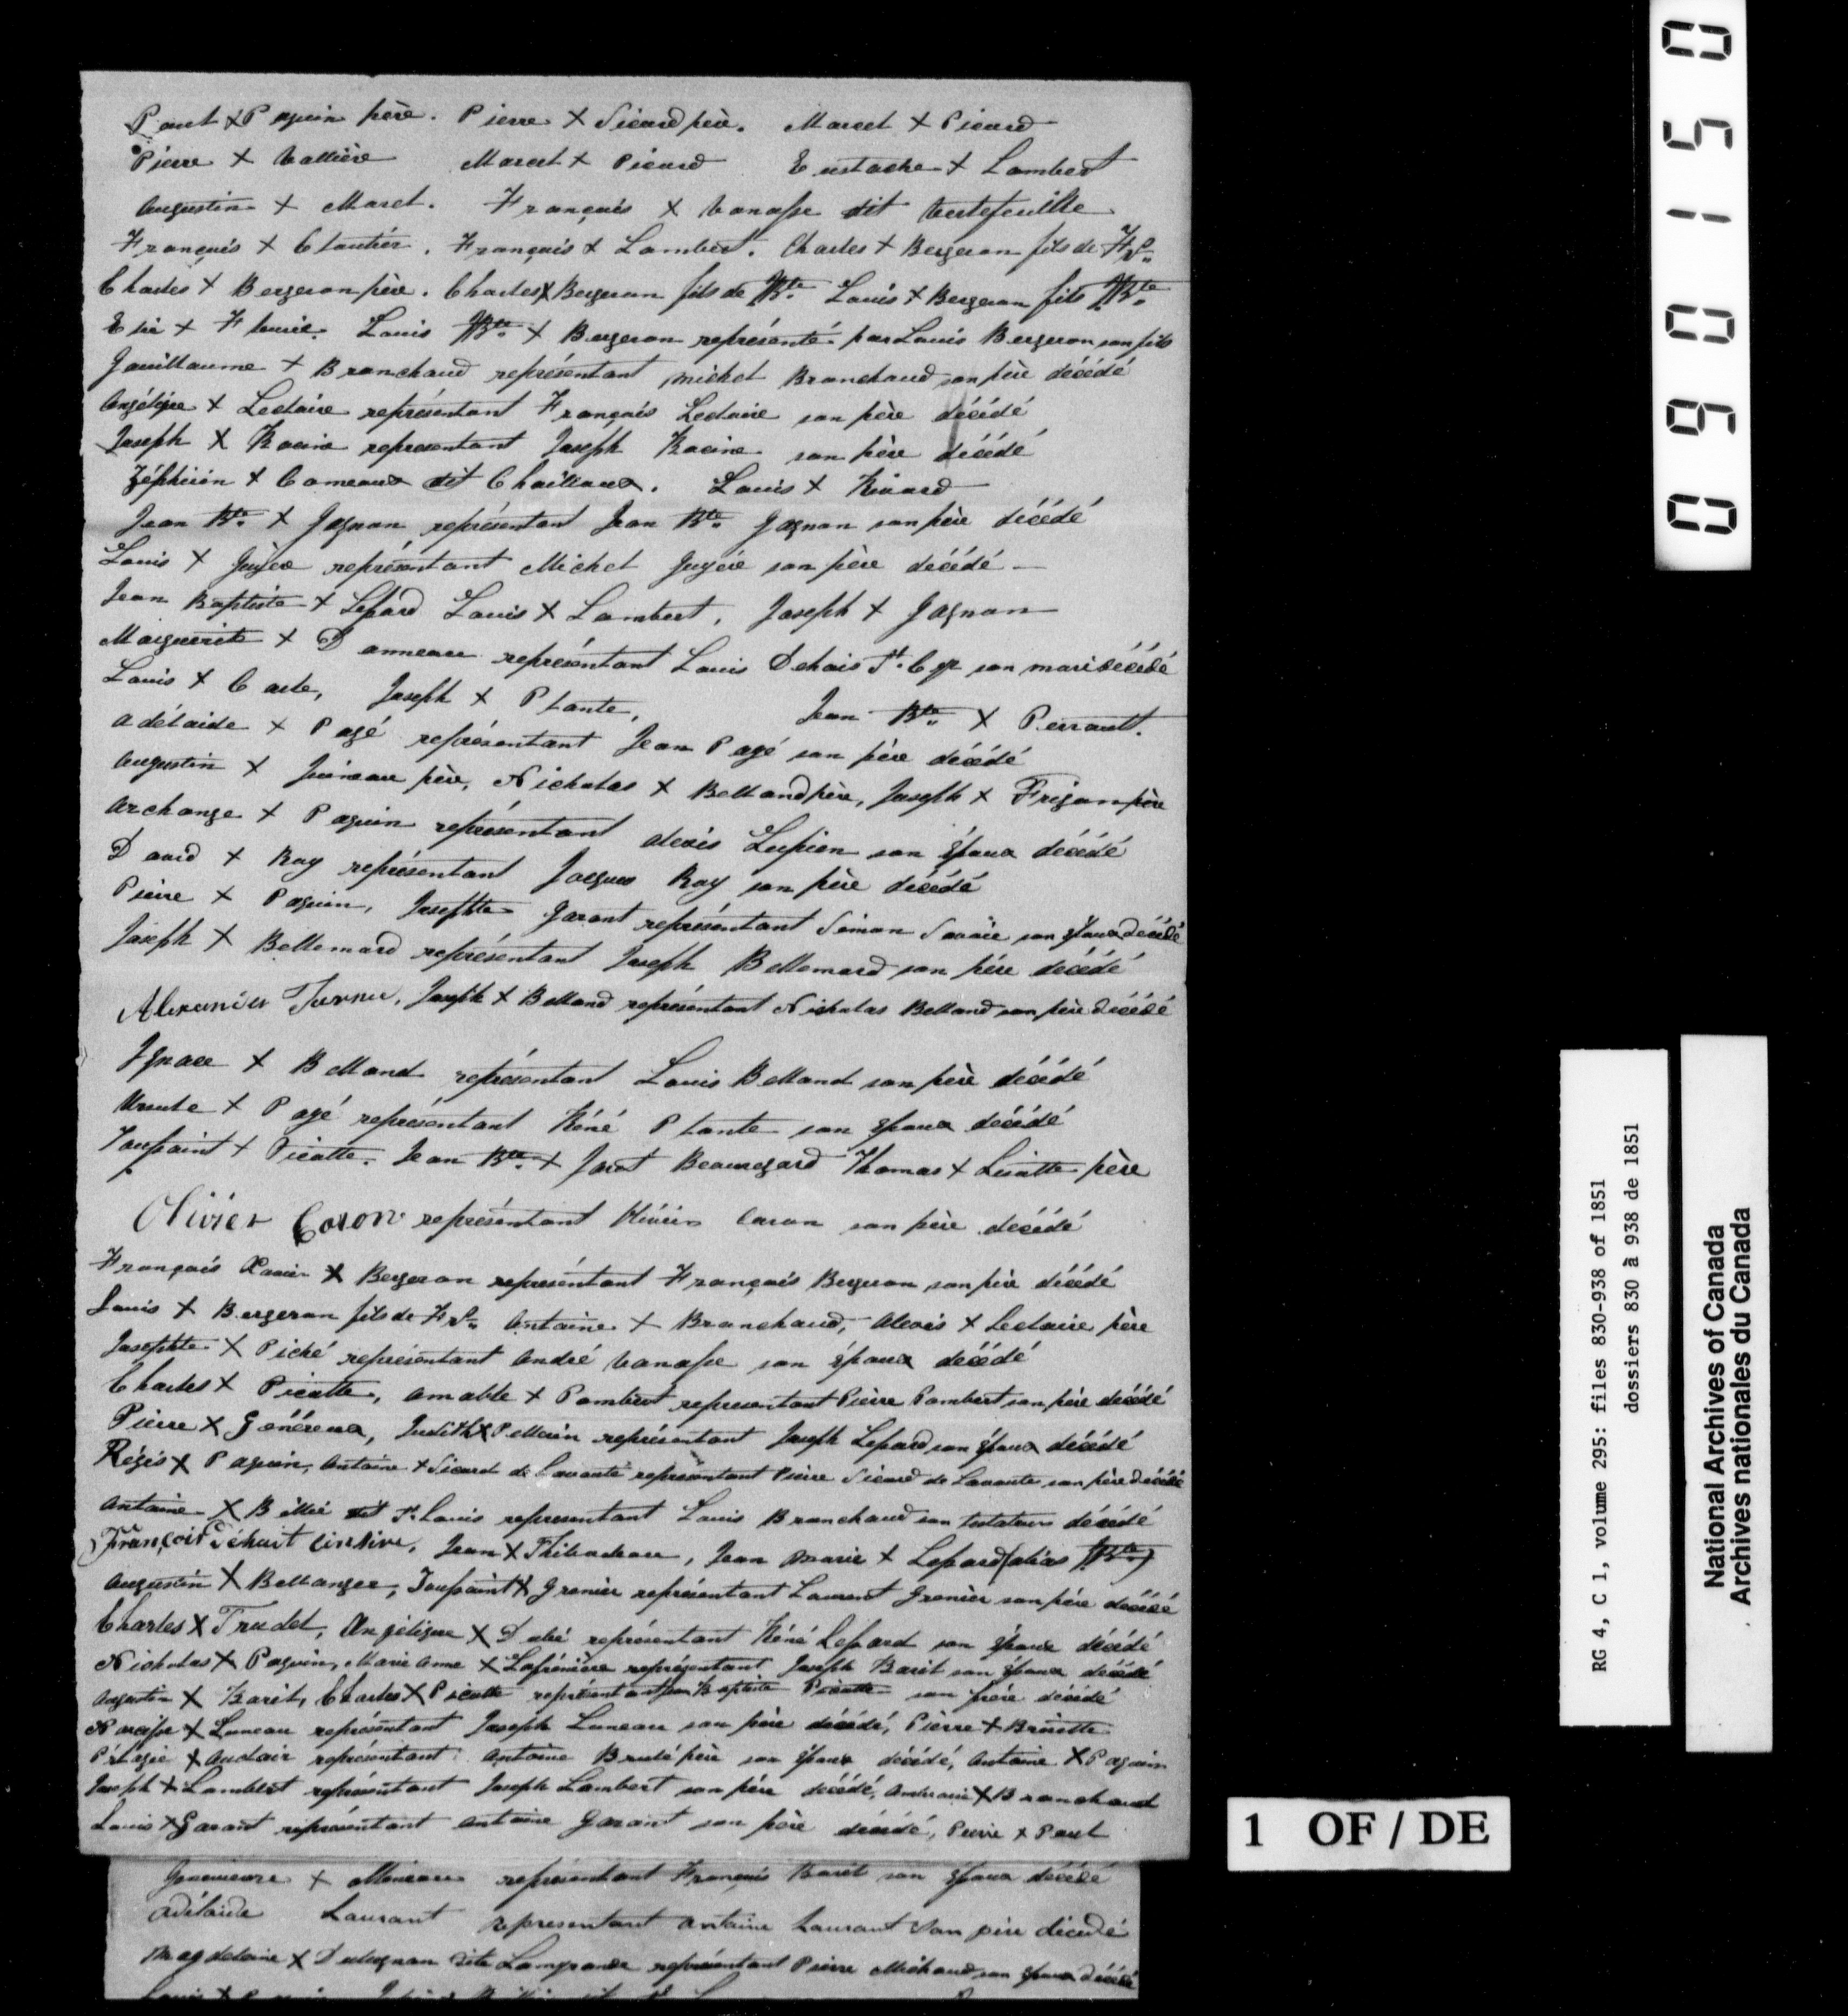 Paul X Paquin père. Pierre X Sicard père. Marcel X Picard
Pierre X Vallière Marcel X Picard Eustache X Lambert
Augustin X Marcl. François X Vanasse dit Vertefeuille
François X Cloutier. François X Lambert. Charles X Bergeron fils de Frs.
Charles X Bergeron père. Charles X Bergeron fils de Bte. Louis X Bergeron fils Bte.
Elie X Fleurie. Louis Bte. X Bergeron représenté par Louis Bergeron son fils
Gouillaume X Branchaud représentant Michel Branchaud son père décédé
Angélique X Leclaire représentant François Leclaire son père décédé
Joseph X Racine représentant Joseph Racine son père décédé
Zéphirin X Comeaux dit Chailloux. Louis X Rivard
Jean Bte. X Gagnon représentant Jean Bte. Gagnon son père décédé
Louis X représentant Michel son père décédé
Jean Baptiste X Lepard Louis X Lambert, Joseph X Gagnon
Marguerite X Danneau représentant Louis Dehais St. Cyr son mari décédé
Louis X Carle, Joseph X Plante, Jean Bte. X Perrault.
Adélaide X Pagé représentant Jean Pagé son père décédé
Augustin X Juineau père, Nicholas X Belland père, Joseph X Frigon père
Archange X Paquin représentant Alexis Lupien son époux décédé
David X Ray représentant Jacques Ray son père décédé
Pierre X Paquin, Josephte Garant représentant Simon Savoie son époux décédé
Joseph X Bellemard représentant Joseph Bellemard son père décédé
Alexander Turner, Joseph X Belland représentant Nicholas Belland son père décédé
Ignace X Belland représentant Louis Belland son père décédé
Ursule X Pagé représentant Réné Plante son époux décédé
Toussaint X Picotte. Jean Bte. X Beauregard Thomas X père
Olivier Caron représentant Olivier Caron son père décédé
François Xavier X Bergeron représentant François Bergeron son père décédé
Louis X Bergeron fils de Frs. Antoine X Branchaud, Alexis X Leclaire père
Josephte X Piché représentant André Vanasse son époux décédé
Charles X Picotte, Amable X Pombert représentant Pierre Pombert son père décédé
Pierre X Généreux, Judith X Pellerin représentant Joseph Lepard son époux décédé
Régis X Paquin, Antoine X Sicard de représentant Pierre Sicard de son père décédé
Antoine X dit St. Louis représentant Louis Branchaud son testateur décédé
François, Jean X Thibaudeau, Jean Marie X Lepard (alias Bte.)
Augustin X Bellanger, Toussaint X Grenier représentant Laurent Grenier son père décédé
Charles X Trudel, Angélique X représentant Réné Lepard son époux décédé
Nicholas X Paquin, Marie Anne X Lafrénière représentant Joseph Baril son époux décédé
Augustin X Baril, Charles X Picotte représentant Jean Baptiste Picotte son frère décédé
Narcisse X Luneau représentant Joseph Luneau son père décédé, Pierre X Brisette
Pélagie X Auclair représentant Antoine Brulé père son époux décédé, Antoine X Paquin
Joseph X Lambert représentant Joseph Lambert son père décédé, X Branchaud
Louis X Garant représentant Antoine Garant son père décédé, Pierre X Paul
Genevieve X représentant François Baril son époux décédé
Adélaide Laurant représentant Antoine Laurant son père décédé
Magdelaine X dite représentant Pierre Michaud son époux décédé
090150
RG 4, C 1, volume 295: files 830-938 of 1851
dossiers 830 à 938 de 1851
National Archives of Canada
Archives nationales du Canada
1 OF / DE